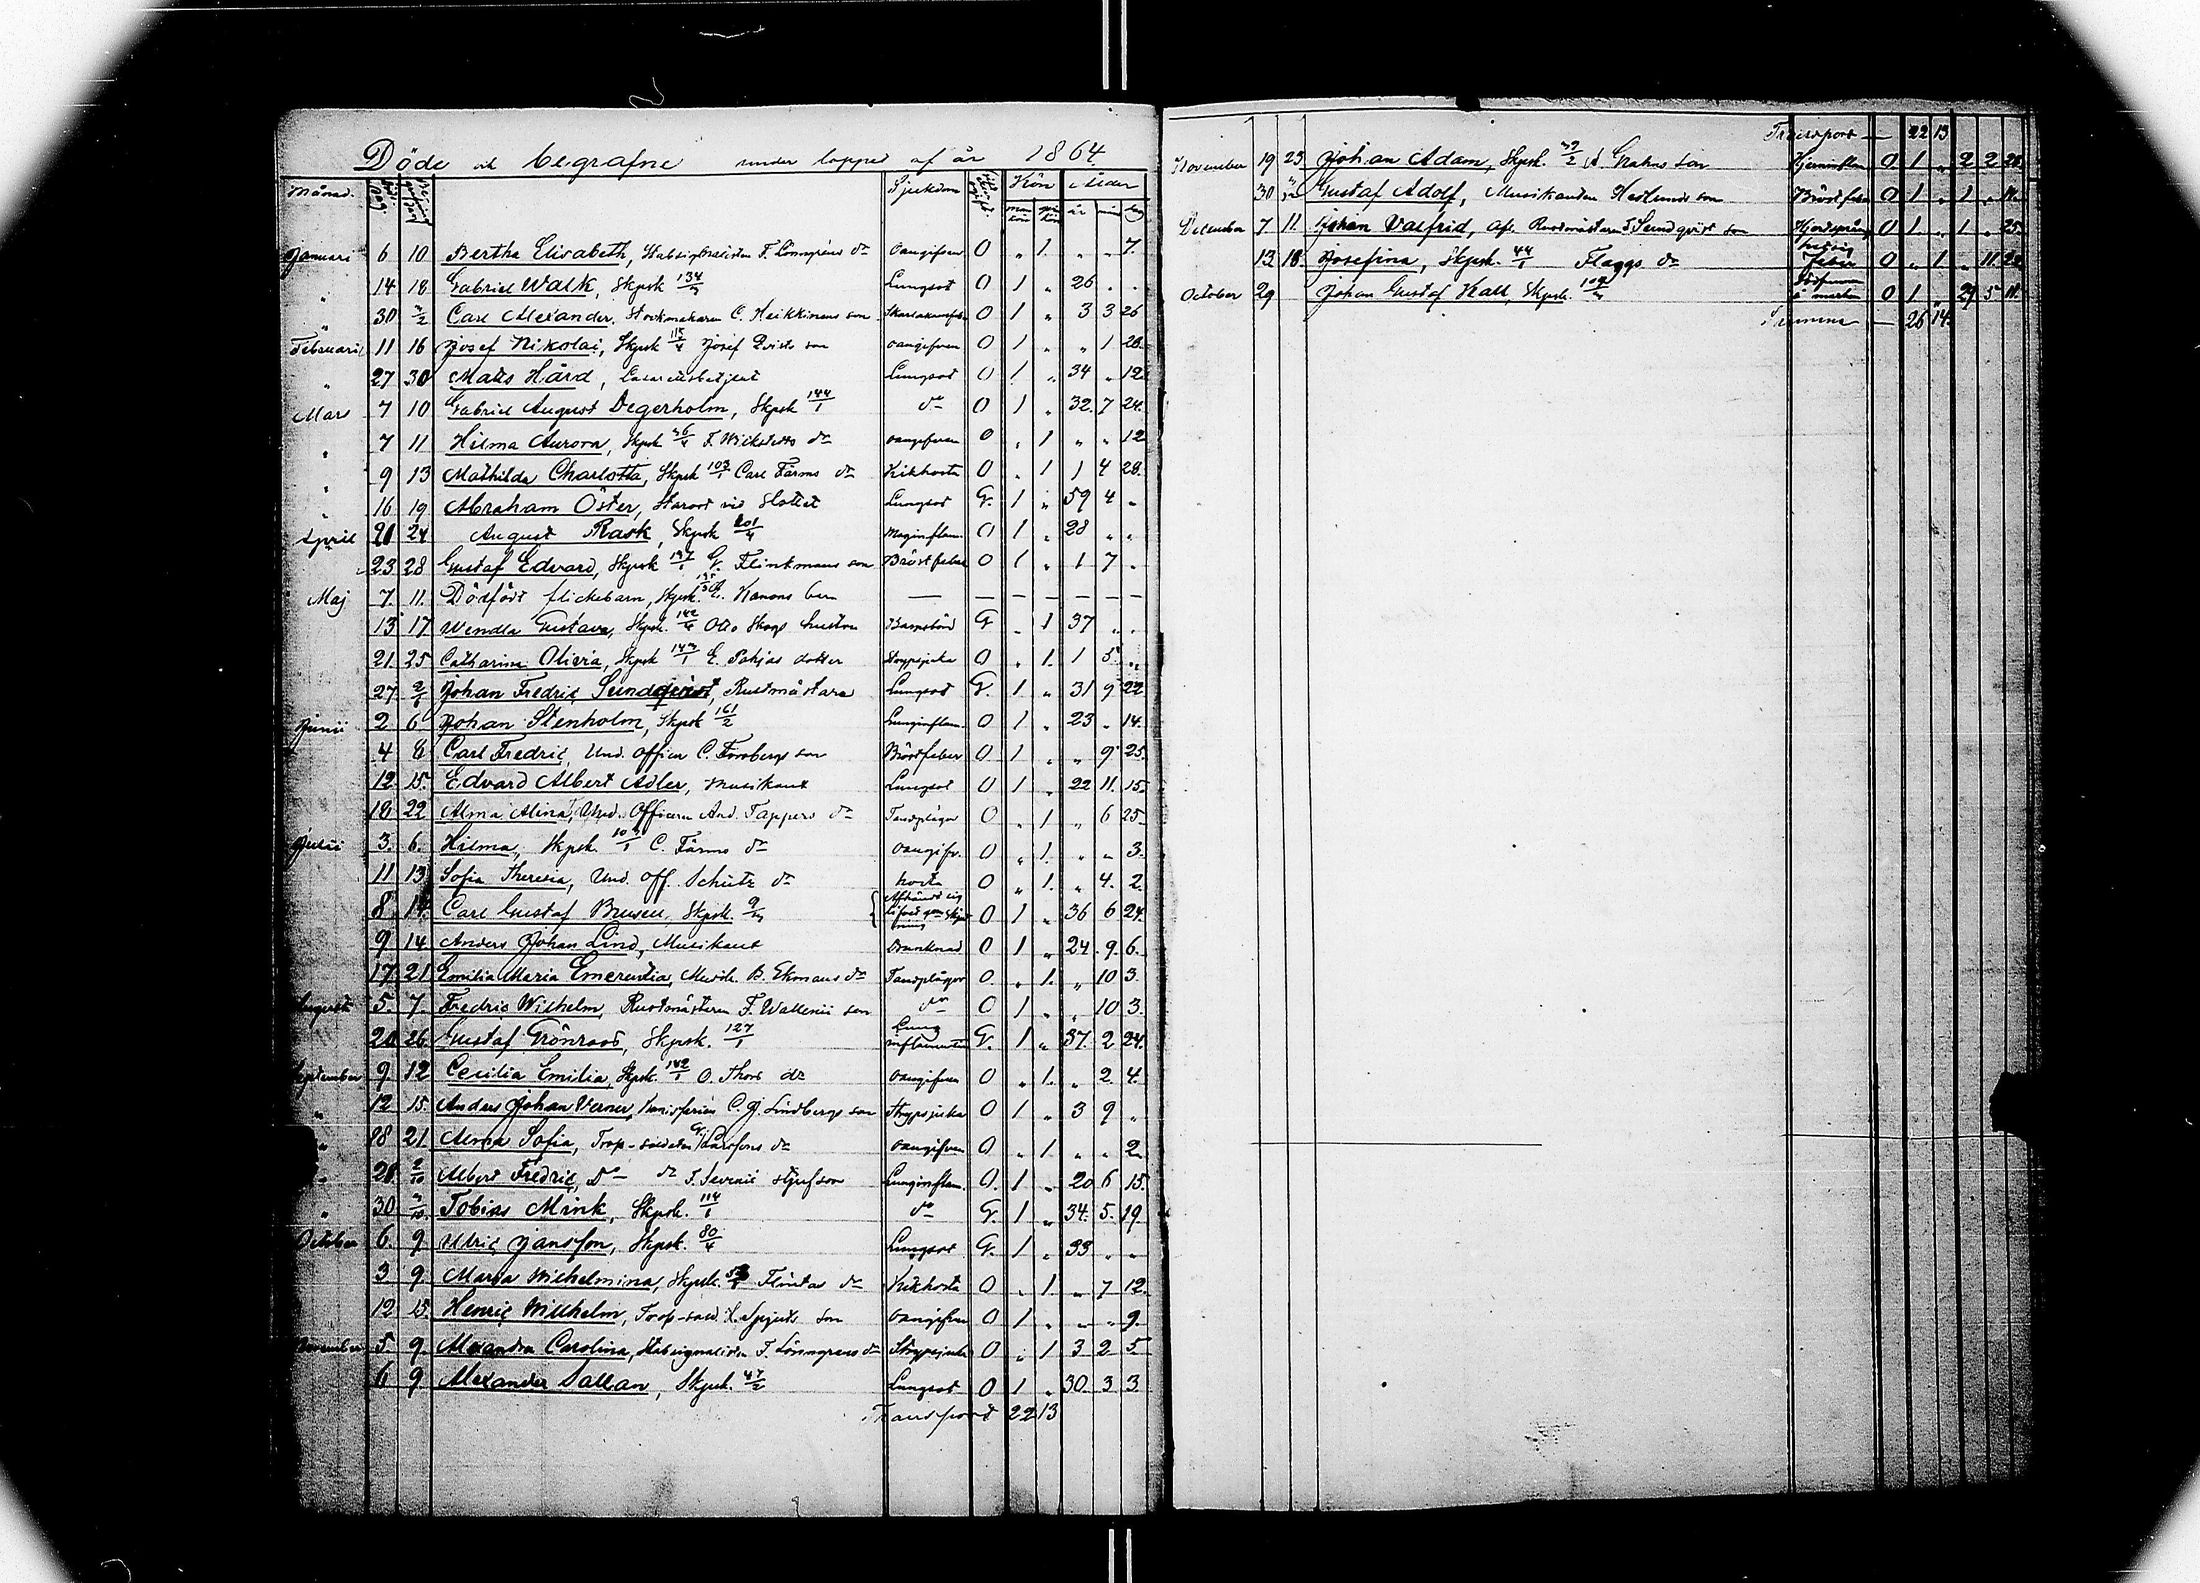 Döde och begrafne under loppet af år 1864
Månad. Sjukdom Kön Ålder
man kön qvin kön år mån dag
Januari 6 10 Bertha Elisabeth, F. Lönngréns dr Oangifven O „ 1. „ „ 7.
„ 14 18 Gabriel Walk, Skpsk 134/3 Lungsot O 1 „ 26 . .
„ 30 3/2 Carl Alexander, Stockmakaren C. Heikkinens son Skarlakansfeb. O 1 „ 3 3 26
Februari 11 16 Josef Nikolai, Skpsk 115/4 Josef Qvists son oangifven O 1 „ „ 1 28.
„ 27 30 Matts Hård, Lasarettsbetjent Lungsot O 1. „ 34 „ 12
Mars 7 10 Gabriel August Degerholm, Skpsk 144/1 do O 1 „ 32. 7 24.
„ 7 11 Hilma Aurora, Skpsk 36/4 F. Wickstedts dr oangifven O „ 1 „ „ 12
„ 9 13 Mathilda Charlotta, Skpsk 103/1 Carl Färms dr Kikhosta O „ 1 1 4 28.
„ 16 19 Abraham Öster, Starost vid Slottet Lungsot G. 1 „ 59 4 „
April 21 24 August Rask, Skpsk 201/4 Maginflam. O 1 „ 28 „ „
23 28 Gustaf Edvard, Skpsk 197/1 G. Flinkmans son Bröstfeber O 1 „ 1 7 „
Maj 7. 11. Dödfödt flickebarn, Skpsk. Kanons barn — — — — — — —
13 17 Wendla Gustava, Skpsk. 142/4 Otto Skogs hustru Barnsbörd G „ 1 37 „ .
21. 25 Catharina Olivia, Skpsk 143/1 E. Pohjas dotter Strypsjuka O „ 1. 1 5. „
27 2/6 Johan Fredric Sundqvist, Rustmästare Lungsot G. 1 „ 31 9 22
Junii 2 6 Johan Stenholm, Skpsk 161/2 Lunginflam. O 1. „ 23 „ 14.
4 8 Carl Fredric, Und. officer C. Forsbergs son Bröstfeber O 1 „ „ 9 25.
12. 15. Edvard Albert Adler, Musikant Lungsot O 1 „ 22 11. 15.
18 22 Alma Alina, Und. Officeren And. Tappers dr Tandplågor O „ 1 „ 6 25.
Julii 3. 6. Hilma, Skpsk. 103/1 C. Färms dr oangifv. O „ 1. „ „ 3.
11 13 Sofia Theresia, Und. Off. Schütz dr hosta O „ 1. „ 4. 2.
8 14. Carl Gustaf Brusen, Skpsk. 9/3 Afhändt sig lifvet O 1 „ 36 6 24.
9. 14 Anders Johan Lind, Musikant Drunknad O 1 „ 24 9. 6.
17. 21. Emilia Maria Emerentia, Musik. B. Ekmans dr Tandplågor O. „ 1. „ 10 3.
Augusti 5. 7. Fredric Wilhelm, Rustmästaren F. Wallenii son do O 1 „ „ 10 3.
20. 26. Gustaf Grönroos, Skpsk. 127/1 Lung inflammation G. 1 „ 37. 2 24.
September 9. 12 Cecilia Emilia, Skpsk. 142/1 O. Thors dr oangifven O „ 1. „ 2. 4.
„ 12 15. Anders Johan Verner, C. J. Lindbergs son Strypsjuka O 1 „ 3 9 „
„ 18 21. Alma Sofia, Trop-soldaten Larssons dr oangifven O „ 1. „ „ 2.
„ 28 2/10 Albert Fredric, Do dr S. Severii styfson Lunginflam. O. 1 „ 20 6 15.
„ 30. 3/10. Tobias Mink, Skpsk. 114/1 do G. 1 „ 34. 5. 19.
October 6. 9 Ulric Jansson, Skpsk. 80/4 Lungsot G. 1 „ 33 „ „
3 9. Maria Wilhelmina, Skpsk. Flintas dr Kikhosta O „ 1. „ 7 12.
12. 15. Henric Wilhelm, Trop-sold. H. Spjuts son oangifven O 1 „ „ „ 9.
November 5 9. Alexandra Carolina, F. Lönngrens dr Strypsjuka O „ 1 3 2. 5
6 9. Alexander Sallan, Skpsk. 47/2 Lungsot O 1 „ 30. 3 3.
Transport 22 13
Transport — 22 13
November 19 23 Johan Adam, Skpsk. 39/2 Grahns son Hjerninflam O. 1 „ 2 2 28.
30 3/12 Gustaf Adolf, Musikanten Hedlunds son Bröstfeber O 1 „ 1 „ 11.
December 7 11. Johan Valfrid, afl. Rustmästaren Sundqvist son O 1. „ 1 „ 25.
13 18. Josefina, Skpsk. 44/1 Flaggs dr feber O „ 1 „ 11. 22
October 29 Johan Gustaf Kall, Skpsk. 109/3 i marken O 1 „ 29 5 11.
Summa — 26 14.